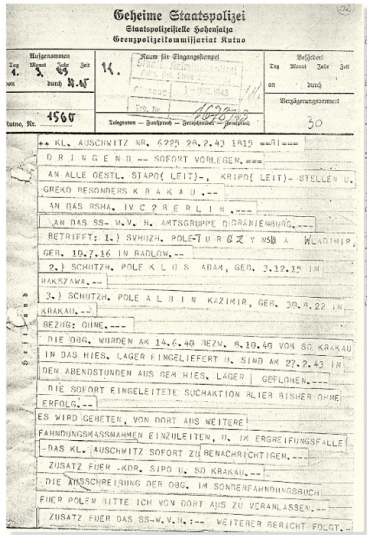 Geheime Staatspolizei
Staatspolizeistelle Hohensalza
Grenzpolizeikommissariat Kutno
Aufgenommen
Tag Monat Jahr Zeit
1. 3. 43
von durch
Raum für Eingangsstempel
Befördert
Tag Monat Jahr Zeit
an durch
Verzögerungsvermerk
Kutno, Nr. 1560
Telegramm — Funkspruch — Fernschreiben — Fernspruch
30
++ KL. AUSCHWITZ NR. 6225 28.2.43 1815 ==
D R I N G E N D -- SOFORT VORLEGEN.===
AN ALLE OESTL. STAPO( LEIT)-, KRIPO( LEIT)- STELLEN U.
GREKO BESONDERS K R A K A U .---
AN DAS RSHA. IV C 2 B E R L I N.---
AN DAS SS- W. V. H. AMTSGRUPPE D ORANIENBURG.---
BETRIFFT: 1.) POLE T U R C Z Y WLADIMIR,
GEB. 10.7.16 IN RADLOW.--
2.) SCHUTZH. POLE K L U S ADAM, GEB. 3.12.15 IN
WARSZAWA.---
3.) SCHUTZH. POLE A L B I N KAZIMIR, GEB. 30.8.22 IN
KRAKAU.--
BEZUG: OHNE.---
DIE OBG. WURDEN AM 14.6.40 BEZW. 8.10.40 VON SD KRAKAU
IN DAS HIES. LAGER EINGELIEFERT U. SIND AM 27.2.43 IN
DEN ABENDSTUNDEN AUS DEM HIES. LAGER GEFLOHEN.---
DIE SOFORT EINGELEITETE SUCHAKTION BLIEB BISHER OHNE
ERFOLG.---
ES WIRD GEBETEN, VON DORT AUS WEITERE
FAHNDUNGSMASSNAHMEN EINZULEITEN, U. IM ERGREIFUNGSFALLE
DAS KL. AUSCHWITZ SOFORT ZU BENACHRICHTIGEN.--
ZUSATZ FUER .KDR. SIPO U. SD KRAKAU.--
DIE AUSSCHREIBUNG DER OBG. IM SONDERFAHNDUNGSBUCH
FUER POLEN BITTE ICH VON DORT AUS ZU VERANLASSEN.--
ZUSATZ FUER DAS SS-W.V.H.:-- WEITERER BERICHT FOLGT.-